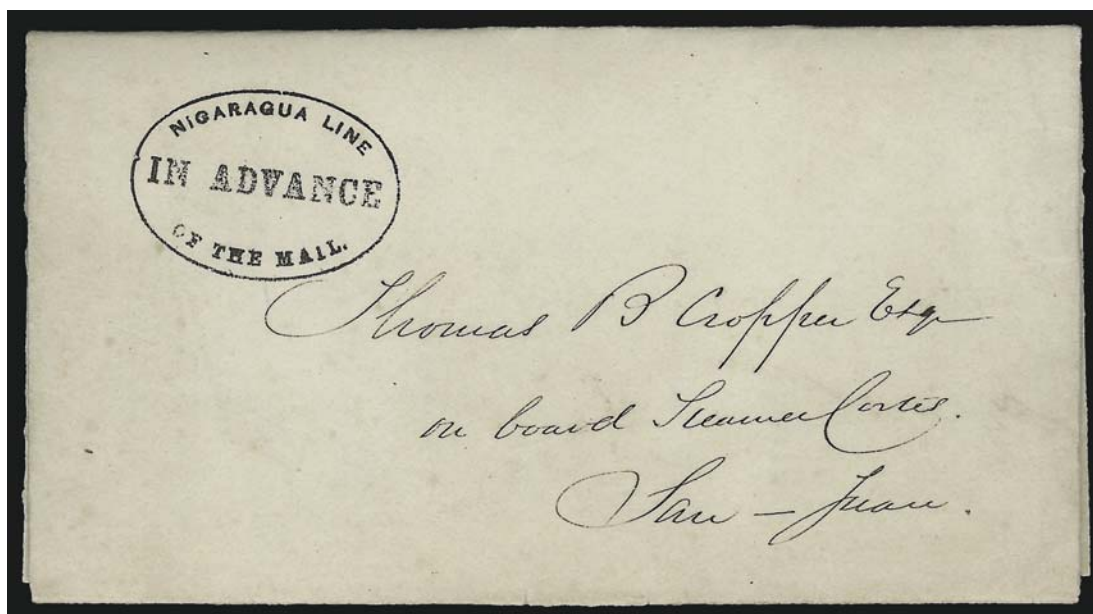 NIGARAGUA LINE
IN ADVANCE
OF THE MAIL.
Thomas B Cropper Esqr
on board Steamer Cortes.
San – Juan.